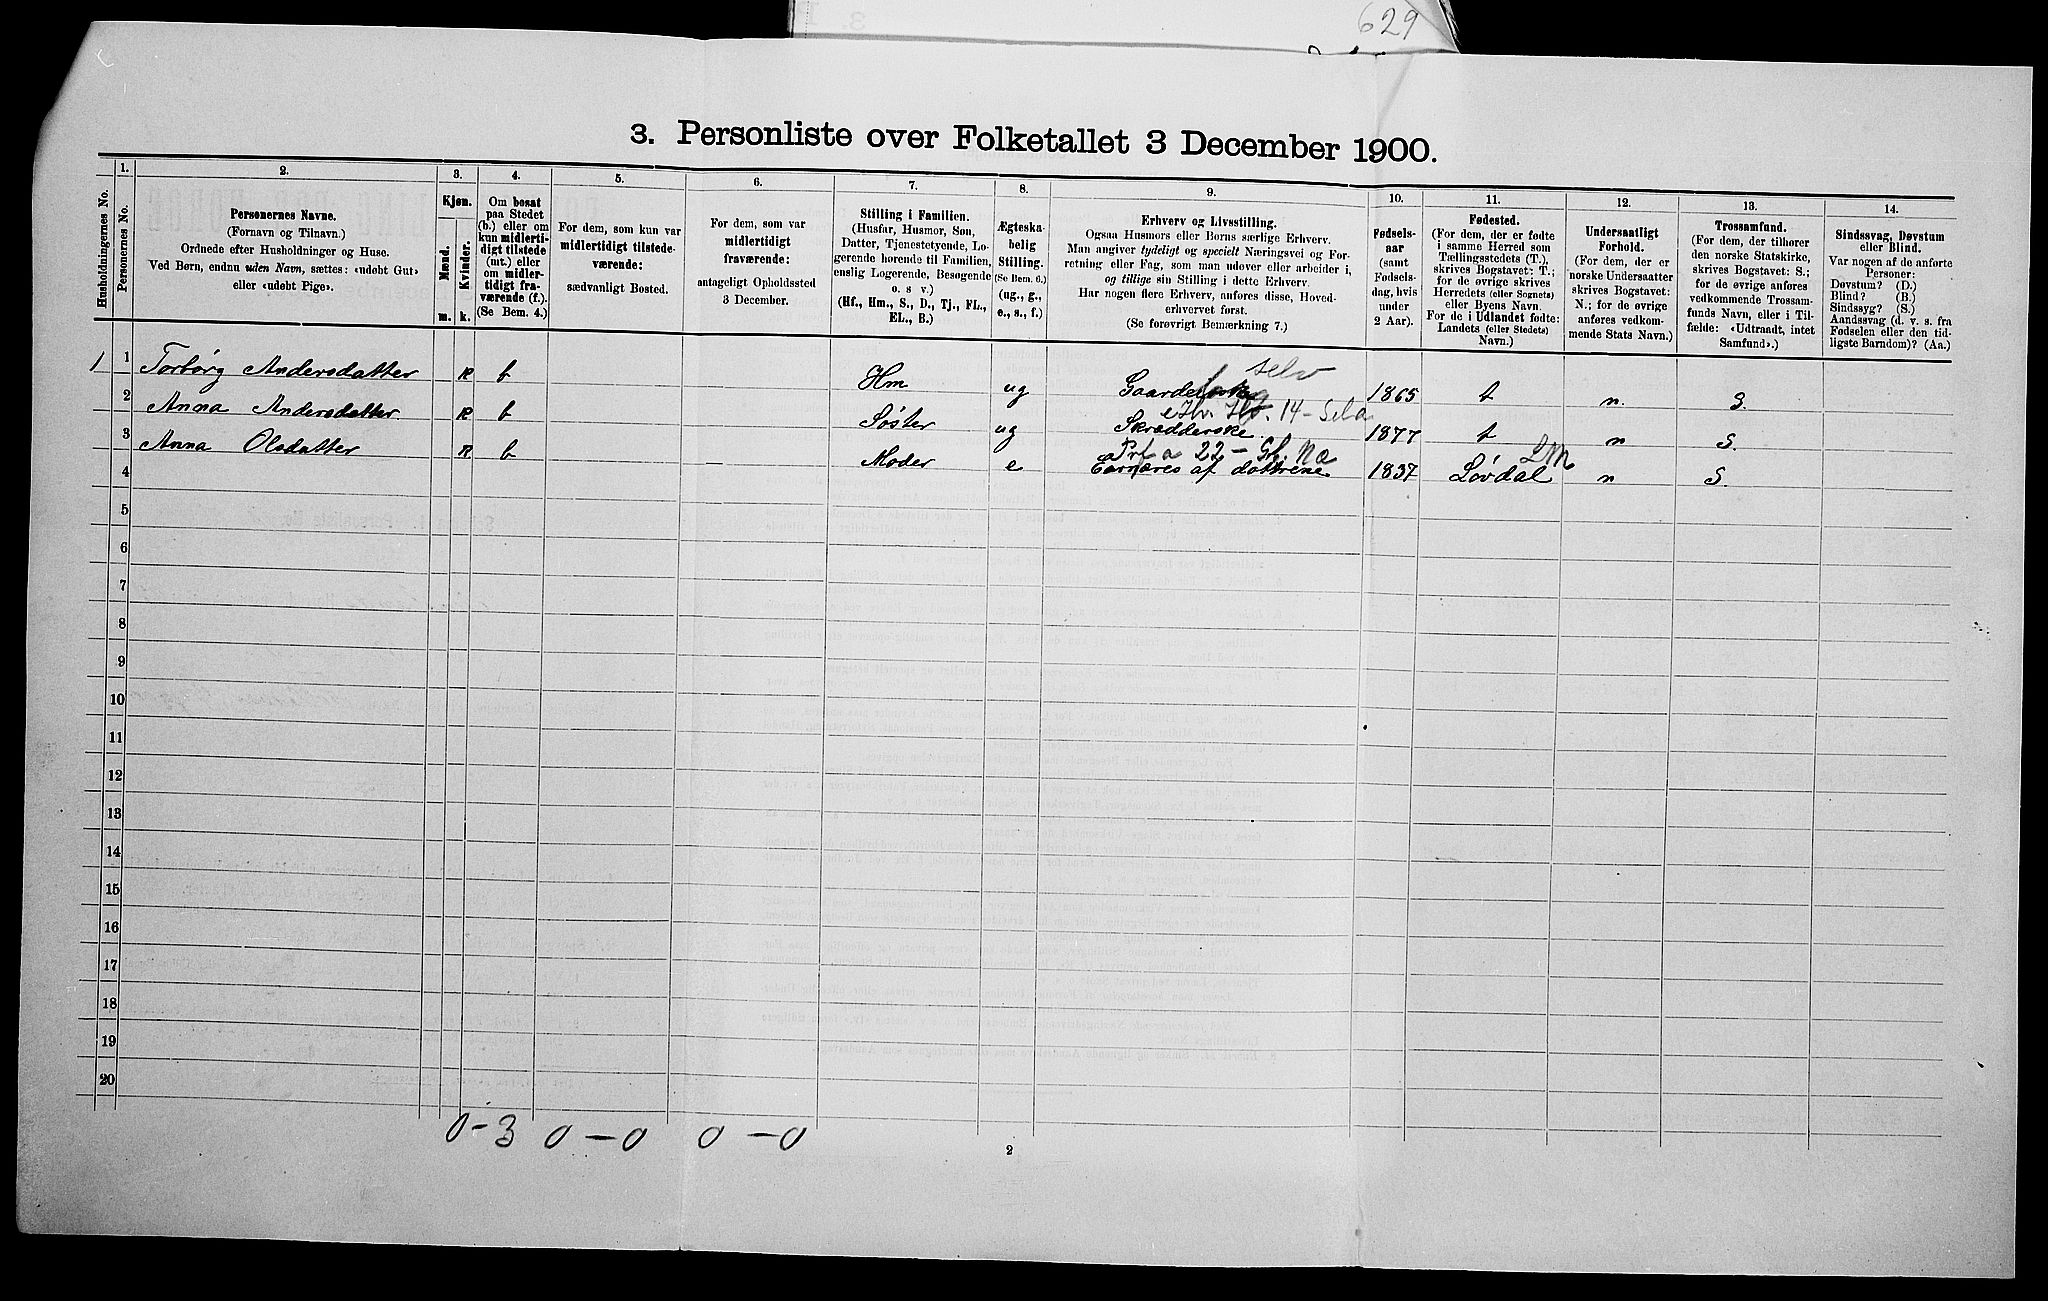 629
3. Personliste over Folketallet 3 December 1900.
Husholdningernes No.
1.
Personernes No.
2.
Personernes Navne.
(Fornavn og Tilnavn.)
Ordnede efter Husholdninger og Huse.
Ved Børn, endnu uden Navn, sættes: «udøbt Gut»
eller «udøbt Pige».
3.
Kjøn.
Mænd.
Kvinder.
m.
k.
4.
Om bosat
paa Stedet
(b.) eller om
kun midlerti-
digt tilstede
(mt.) eller
om midler-
tidigt fra-
værende (f.).
(Se Bem. 4.)
5.
For dem, som kun var
midlertidigt tilstede-
værende:
sædvanligt Bosted.
6.
For dem, som var
midlertidigt
fraværende:
antageligt Opholdssted
3 December.
7.
Stilling i Familien.
(Husfar, Husmor, Søn,
Datter, Tjenestetyende, Lo-
gerende hørende til Familien,
enslig Logerende, Besøgende
o. s. v.)
(Hf., Hm., S., D., Tj., FL.,
EL., B.)
8.
Ægteska-
belig
Stilling.
(Se Bem. 6.)
(ug., g.,
e., s., f.)
9.
Erhverv og Livsstilling.
Ogsaa Husmors eller Børns særlige Erhverv.
Man angiver tydeligt og specielt Næringsvei og For-
retning eller Fag, som man udøver eller arbeider i,
og tillige sin Stilling i dette Erhverv.
Har nogen flere Erhverv, anføres disse, Hoved-
erhvervet først.
(Se forøvrigt Bemærkning 7.)
10.
Fødsels-
aar
(samt
Fødsels-
dag, hvis
under
2 Aar).
11.
Fødested.
(For dem, der er fødte
i samme Herred som
Tællingsstedets (T.),
skrives Bogstavet: T.;
for de øvrige skrives
Herredets (eller Sognets)
eller Byens Navn
For de i Udlandet fødte:
Landets (eller Stedets)
Navn.)
12.
Undersaatligt
Forhold.
(For dem, der er
norske Undersaatter
skrives Bogstavet:
N.; for de øvrige
anføres vedkom-
mende Stats Navn.)
13.
Trossamfund.
(For dem, der tilhører
den norske Statskirke,
skrives Bogstavet: S.;
for de øvrige anføres
vedkommende Trossam-
funds Navn, eller i Til-
fælde: «Udtraadt, intet
Samfund».)
14.
Sindssvag, Døvstum
eller Blind.
Var nogen af de anførte
Personer:
Døvstum? (D.)
Blind? (B.)
Sindssyg? (S.)
Aandssvag (d. v. s. fra
Fødselen eller den tid-
ligste Barndom)? (Aa.)
selv
1 1 Torbørg Andersdatter k b Hm ug 1865 t n. S.
14 - Sela
2 Anna Andersdatter k b Søster ug Skrædderske 1877 t n S.
22 - LM
3 Anna Olsdatter k b Moder e af døttrene 1837 Løvdal n S.
4
5
6
7
8
9
10
11
12
13
14
15
16
17
18
19
20
0 - 3 0 - 0 0 - 0
2